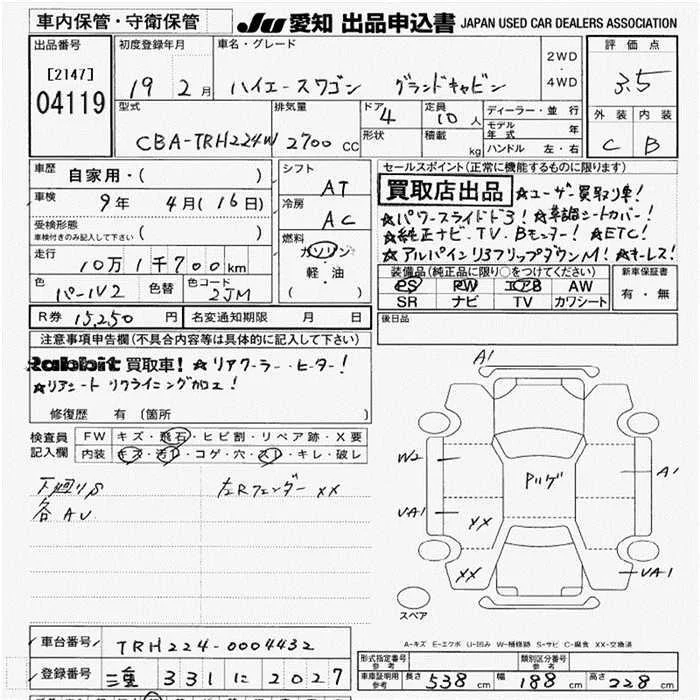 車内保管・守衛保管 JU 愛知 出品申込書 JAPAN USED CAR DEALERS ASSOCIATION
出品番号 初度登録年月 車名・グレード 2WD・4WD 評価点
[2147] 04119 19 2月 ハイエースワゴン グランドキャビン 3.5
型式 排気量 ドア 定員 ディーラー・並行 外装 内装
CBA-TRH224W 2700 CC 4 10人 モデル年式 年 C B
形状 積載 kg ハンドル 左・右
車歴 自家用・( ) シフト AT セールスポイント(正常に機能するものに限ります)
車検 9年 4月(16日) 冷房 AC 買取店出品 ☆ユーザー買取り車!
受検形態 車検付きのみ記入して下さい ( ) ☆パワースライドドア! ☆革調シートカバー!
燃料 ガソリン 軽・油 ( ) ☆純正ナビ.TV.Bモニター! ☆ETC!
走行 10万1千700km ☆アルパインリアフリップダウンM! ☆キーレス!
色 パール2 色替 色コード 2JM 装備品(純正品に限り○をつけてください) 新車保証書
PS PW エアB AW 有・無
SR ナビ TV カワシート
R券 15,250円 名変通知期限 月 日 後日品
注意事項申告欄(不具合内容等は具体的に記入して下さい)
Rabbit 買取車! ☆リアクーラー・ヒーター!
☆リアシート リクライニング加工!
修復歴 有 (箇所 )
検査員記入欄 FW キズ・飛石・ヒビ割・リペア跡・X要
内装 キズ・汚レ・コゲ・穴・スレ・キレ・破レ
下廻りS 左Rフェンダー XX
各AU
A1
W2
A1
UA1
XX
XX
UA1
スペア
A-キズ E-エクボ U-凹み W-補修跡 S-サビ C-腐食 XX-交換済
車台番号 TRH224-0004432
登録番号 三重 331 に 2027
形式指定番号 参考 類別区分番号 参考
車庫証明用 参考 長さ 538cm 幅 188cm 高さ 228cm